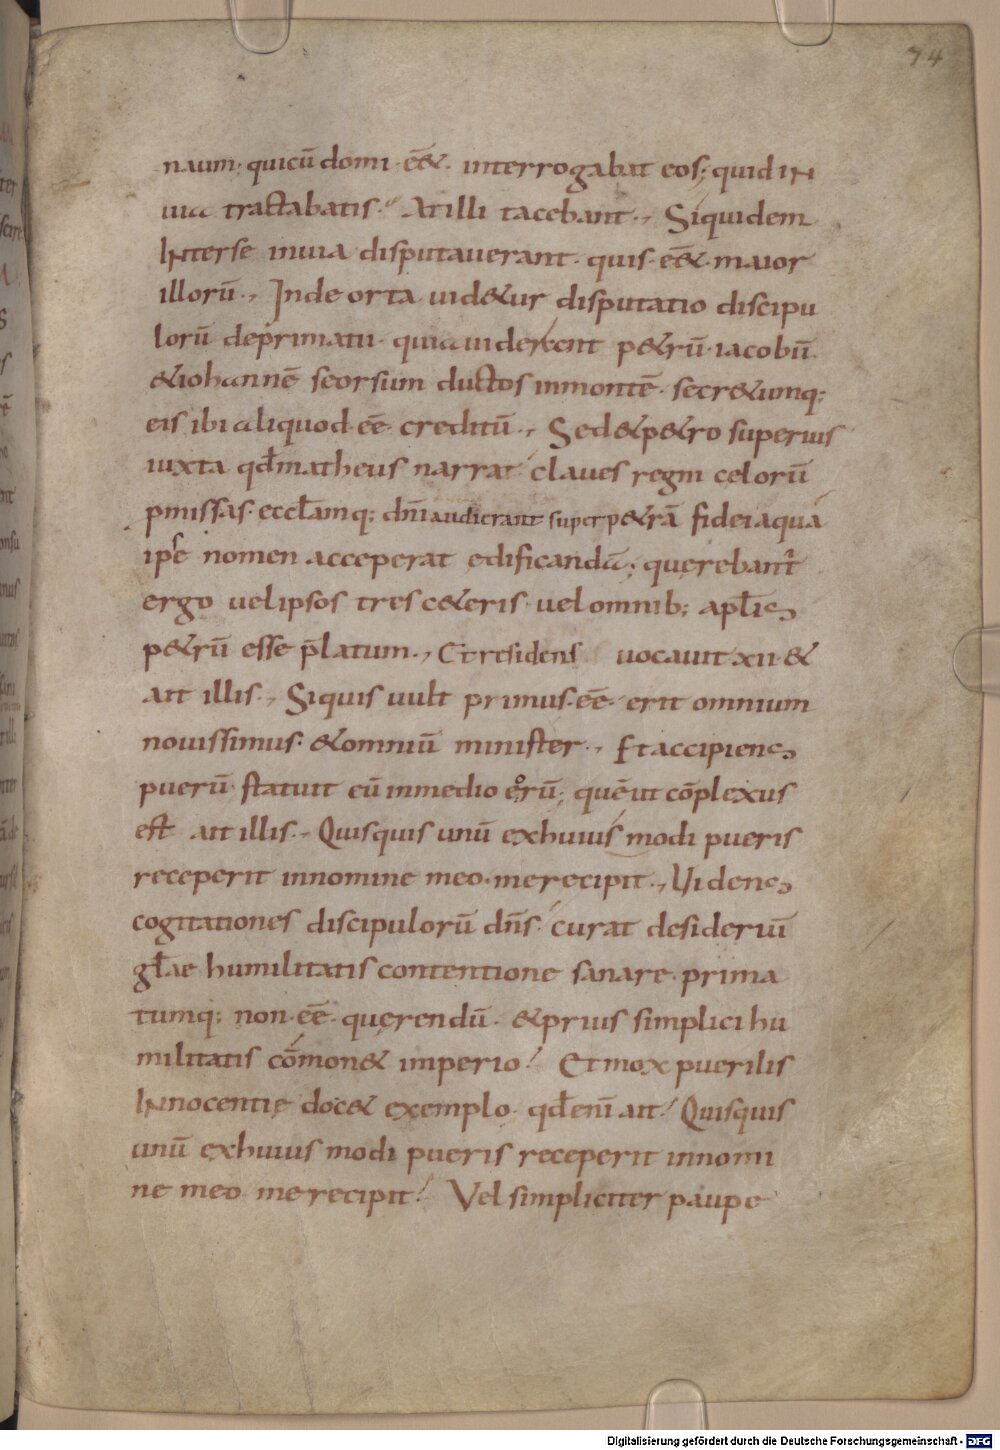 74
naum; quicū domi·eē&· interrogabat eos; quid in
uia tractabatis· At illi tacebant·, Siquidem
Interse inuia disputauerant· quis·eē&·maior
illorū·, Inde orta uid&ur disputatio discipu
lorū deprimatu· quia uiderent p&rū·iacobū·
&iohannē seorsum ductos inmontē· secr&umq;
eis ibi aliquod·eē· creditū·, Sed&p&ro superius
iuxta qđmatheus narrat claues regni celorū
pmissas·eccłamq; dn̄i audierant super p&rā fidei aqua
ipse nomen acceperat edificandā; querebant̄
ergo uelipsos tres c&eris·uelomnib; apłis
p&rū esse p̄latum·, Et residens uocauit·xii·&
ait illis·, Siquis uult primus·eē· erit omnium
nouissimus· &omniū minister·, Et accipiens
puerū· statuit eū inmedio eorū; quē ut cōplexus
est ait illis·, Quisquis unū exhuius modi pueris
receperit innomine meo·merecipit·, Uidens
cogitationes discipulorū dn̄s· curat desideriū
głae humilitatis contentione sanare·prima
tumq; non·eē·querendū· &prius simplici hu
militatis cōmon& imperio! Et mox puerilis
Innocentię doc& exemplo· qđenī ait! Quisquis
unū exhuius modi pueris receperit innomi
ne meo merecipit! Vel simpliciter paupe
Digitalisierung gefördert durch die Deutsche Forschungsgemeinschaft - DFG